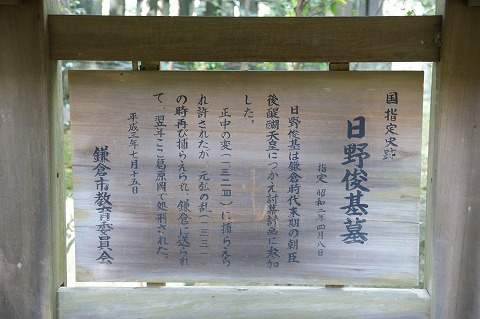 国指定史跡
日野俊基墓
指定 昭和二年四月八日
日野俊基は鎌倉時代末期の朝臣
後醍醐天皇につかえ討幕計画に参加
した。
正中の変(一三二四)に捕らえら
れ許されたが 元弘の乱(一三三一)
の時再び捕らえられ、鎌倉に送られ
て、翌年ここ葛原岡で処刑された。
平成三年七月十五日
鎌倉市教育委員会